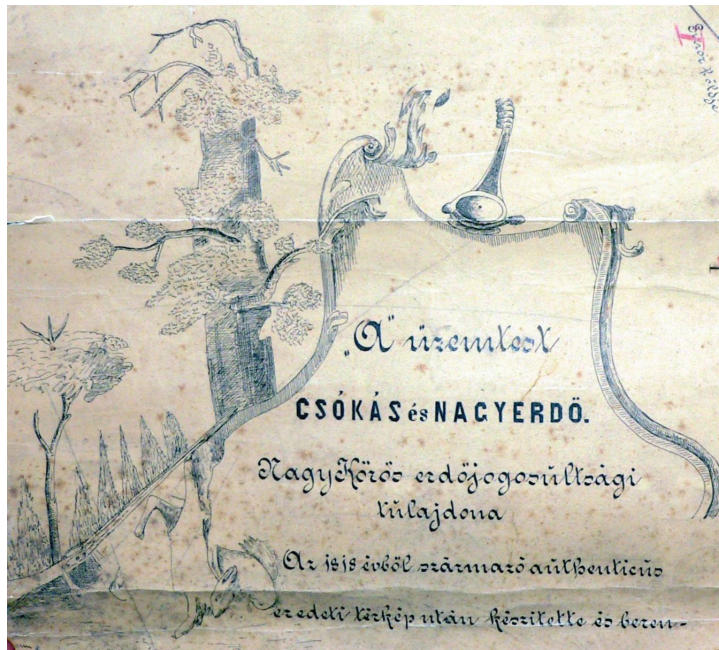 „A" üzemtest
CSÓKÁS és NAGYERDŐ.
Nagy Kőrös erdőjogosúltsági
túlajdona
Az 1818 évből származó authenticús
eredeti térkép után készítette és beren-
I